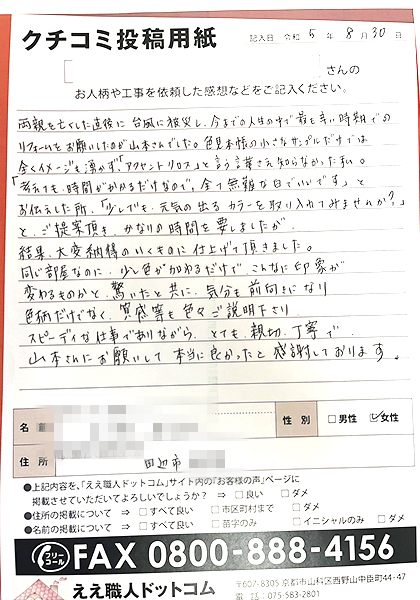 クチコミ投稿用紙
記入日 令和 5 年 8 月 30 日
さんの
お人柄や工事を依頼した感想などをご記入ください。
両親を亡くした直後に台風に被災し、今までの人生の中で最も辛い時期での
リフォームをお願いしたのが山本さんでした。色見本様の小さなサンプルだけでは
全くイメージも湧かず、「アクセントクロス」と言う言葉さえ知らなかった私。
「考えても時間がかかるだけなので、全て無難な白でいいです」と
お伝えした所、「少しでも、元気の出るカラーを取り入れてみませんか?」
と、ご提案頂き、かなりの時間を要しましたが、
結果、大変納得のいくものに仕上げて頂きました。
同じ部屋なのに、少し色が加わるだけで、こんなに印象が
変わるものかと、驚いたと共に、気分も前向きになり
色柄だけでなく、質感等も色々ご説明下さり、
スピーディな仕事でありながら、とても、親切、丁寧で、
山本さんにお願いして本当に良かったと感謝しております。
名 前
性 別 □男性 ☑女性
住 所 田辺市
●上記内容を、「ええ職人ドットコム」サイト内の『お客様の声』ページに
掲載させていただいてよろしいでしょうか? ⇒ □良い □ダメ
●住所の掲載について ⇒ □すべて良い □市区町村まで □ダメ
●名前の掲載について ⇒ □すべて良い □苗字のみ □イニシャルのみ □ダメ
フリーコール FAX 0800-888-4156
ええ職人ドットコム
〒607-8305 京都市山科区西野山中臣町44-47
電 話 : 075-583-2801